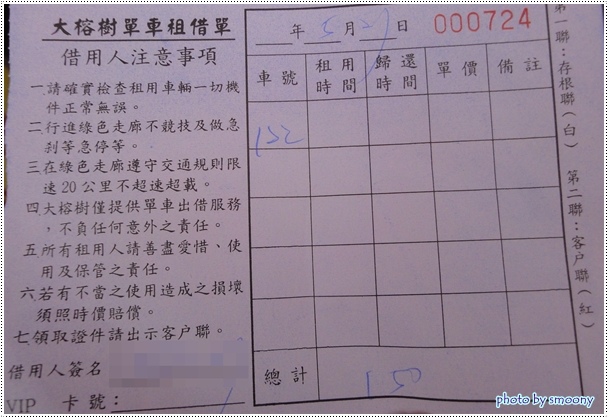 大榕樹單車租借單
借用人注意事項
一請確實檢查租用車輛一切機
件正常無誤。
二行進綠色走廊不競技及做急
剎等急停等。
三在綠色走廊遵守交通規則限
速20公里不超速超載。
四大榕樹僅提供單車出借服務
，不負任何意外之責任。
五所有租用人請善盡愛惜、使
用及保管之責任。
六若有不當之使用造成之損壞
須照時價賠償。
七領取證件請出示客户聯。
借用人簽名
VIP 卡號：
年 5 月 27 日 000724
車號 租用時間 歸還時間 單價 備註
132
總計 150
第一聯：存根聯(白) 第二聯：客户聯(紅)
photo by smoony